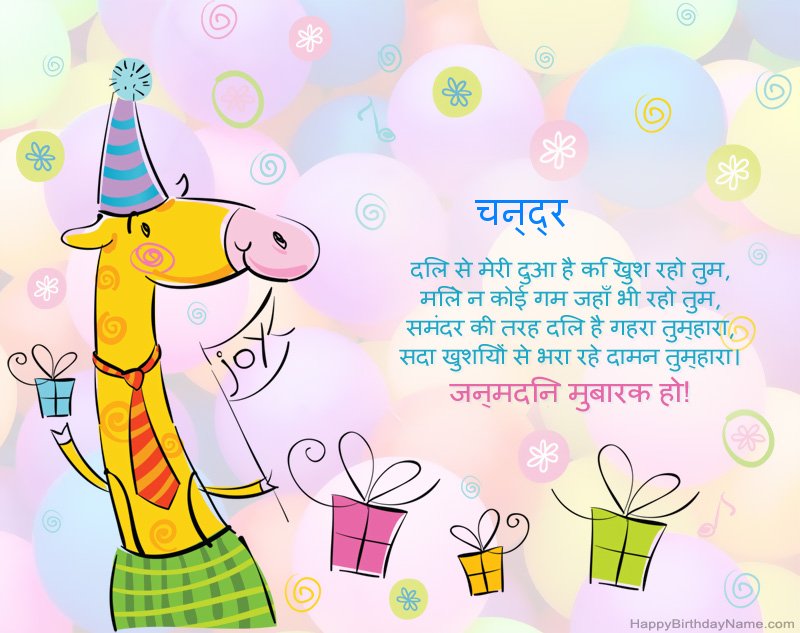 चन्द्र
दिल से मेरी दुआ है कि खुश रहो तुम,
मिले न कोई गम जहाँ भी रहो तुम,
समंदर की तरह दिल है गहरा तुम्हारा,
सदा खुशियों से भरा रहे दामन तुम्हारा।
जन्मदिन मुबारक हो!
joy
HappyBirthdayName.com